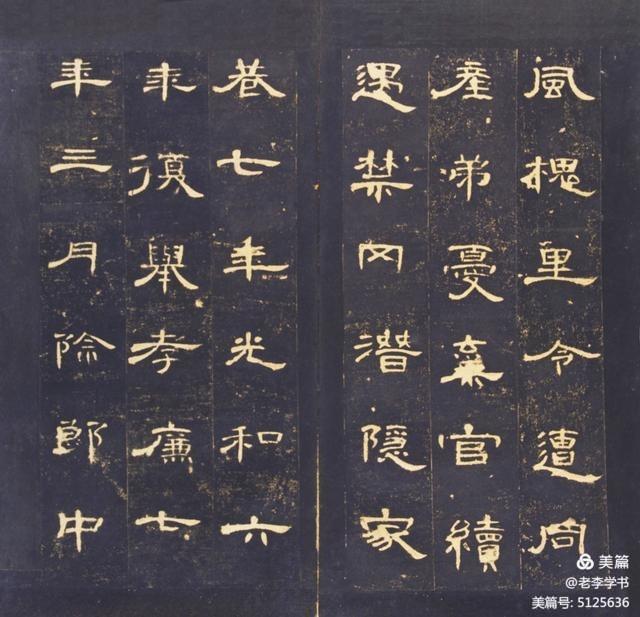 風槐里令遭同
產弟憂棄官續
遇禁网潛隱家
巷七年光和六
年復舉孝廉七
年三月除郎中
美篇
@老李学书
美篇号: 5125636